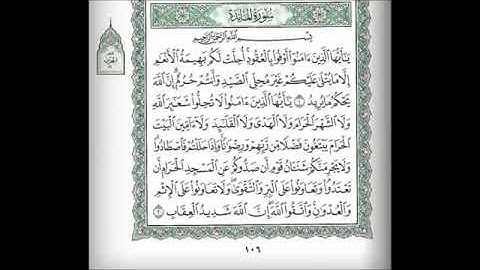 سورة المائدة
بسم الله الرحمن الرحيم
يَٰٓأَيُّهَا الَّذِينَ ءَامَنُوٓا أَوْفُوا بِالْعُقُودِ أُحِلَّتْ لَكُم بَهِيمَةُ الْأَنْعَٰمِ
إِلَّا مَا يُتْلَىٰ عَلَيْكُمْ غَيْرَ مُحِلِّي الصَّيْدِ وَأَنتُمْ حُرُمٌ إِنَّ اللَّهَ
يَحْكُمُ مَا يُرِيدُ ١ يَٰٓأَيُّهَا الَّذِينَ ءَامَنُوا لَا تُحِلُّوا شَعَٰٓئِرَ اللَّهِ
وَلَا الشَّهْرَ الْحَرَامَ وَلَا الْهَدْيَ وَلَا الْقَلَٰٓئِدَ وَلَآ ءَآمِّينَ الْبَيْتَ
الْحَرَامَ يَبْتَغُونَ فَضْلًا مِّن رَّبِّهِمْ وَرِضْوَٰنًا وَإِذَا حَلَلْتُمْ فَاصْطَادُوا
وَلَا يَجْرِمَنَّكُمْ شَنَـَٔانُ قَوْمٍ أَن صَدُّوكُمْ عَنِ الْمَسْجِدِ الْحَرَامِ أَن
تَعْتَدُوا وَتَعَاوَنُوا عَلَى الْبِرِّ وَالتَّقْوَىٰ وَلَا تَعَاوَنُوا عَلَى الْإِثْمِ
وَالْعُدْوَٰنِ وَاتَّقُوا اللَّهَ إِنَّ اللَّهَ شَدِيدُ الْعِقَابِ ٢
١٠٦